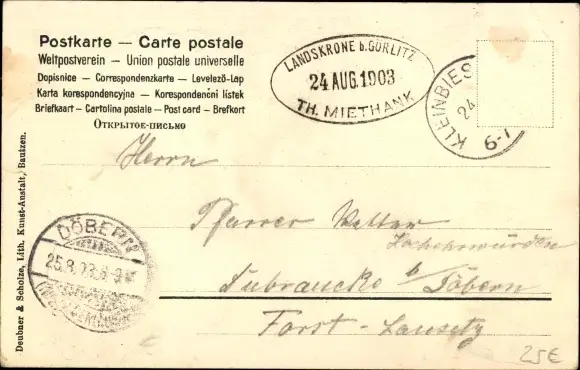 Postkarte — Carte postale
Weltpostverein — Union postale universelle
Dopisnice — Correspondenzkarte — Levelező-Lap
Karta korespondencyjna — Korespondenčni listek
Briefkaart — Cartolina postale — Post card — Brefkort
Открытое-письмо
LANDSKRONE b. GÖRLITZ
24 AUG. 1903
TH. MIETHANK
KLEINBIES
24
6-7
Herrn
Pfarrer Walter
Hochehrwürden
Dubraucke b/Döbern
Forst-Lausitz
DÖBERN
25.8.03.
Deubner & Scholze, Lith. Kunst-Anstalt, Bautzen.
25€